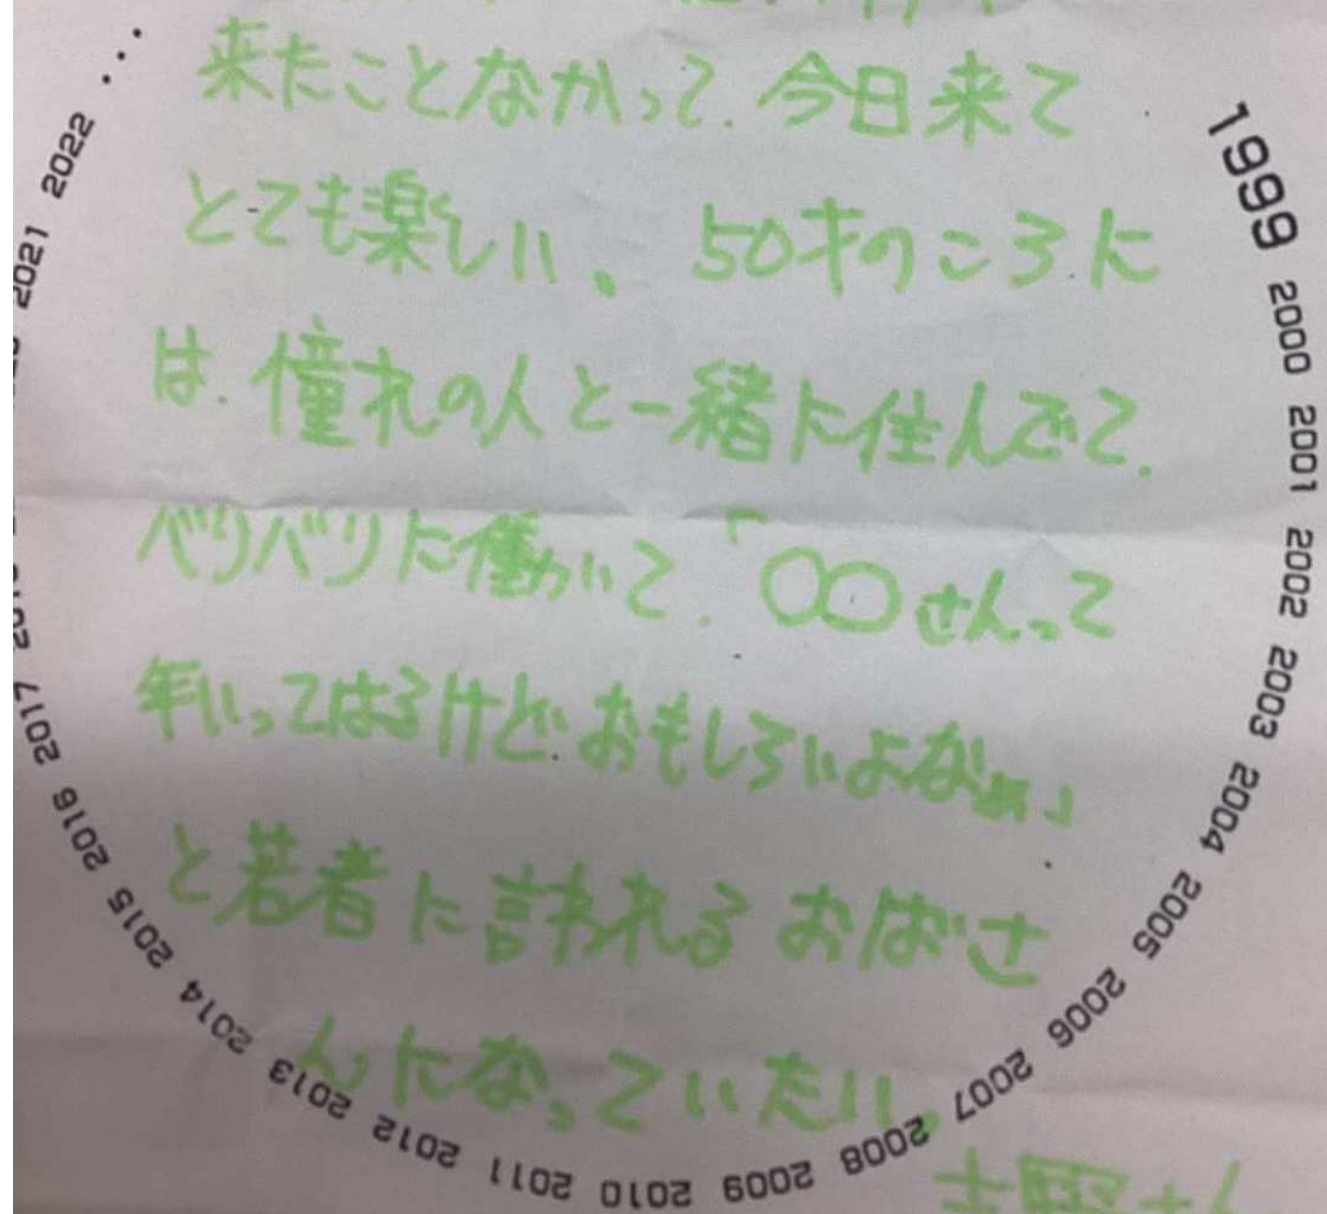 来たことなかって、今日来て
とても楽しい。50才のころに
は、憧れの人と一緒に住んでて、
バリバリに働いて、「○○さんって
年いってはるけど、おもしろいよなぁ」
と若者に言われるおばさ
んになっていたい。
1999 2000 2001 2002 2003 2004 2005 2006 2007 2008 2009 2010 2011 2012 2013 2014 2015 2016 2017
2021 2022 ...